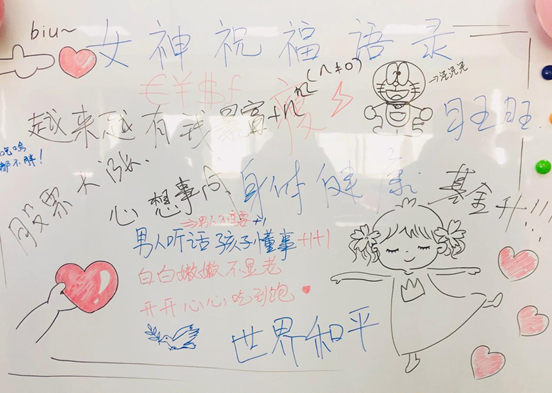 biu~
女神祝福语录
€¥$£
越来越有钱 暴富+1
瘦
→洗洗美
旺旺
吃吗
都不胖!
股票大涨.
心想事成.
身体健康
基金升!!!
+1
男人听话 孩子懂事 +1+1
白白嫩嫩不显老
开开心心吃到饱
世界和平